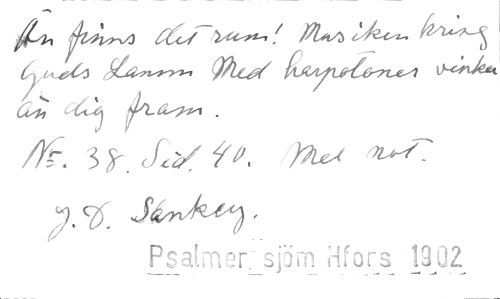 Än finns det rum! Musiken kring
Guds Lamm Med harpotoner vinkar
än dig fram.
No. 38. Sid. 40. Mel not.
J. D. Sankey.
Psalmer sjöm Hfors 1902